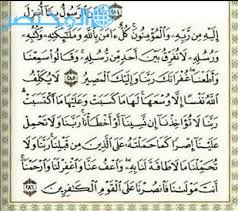 ٱلرَّسُولُ بِمَآ أُنزِلَ
إِلَيْهِ مِن رَّبِّهِۦ وَٱلْمُؤْمِنُونَ كُلٌّ ءَامَنَ بِٱللَّهِ وَمَلَٰٓئِكَتِهِۦ وَكُتُبِهِۦ
وَرُسُلِهِۦ لَا نُفَرِّقُ بَيْنَ أَحَدٍ مِّن رُّسُلِهِۦ وَقَالُوا۟ سَمِعْنَا
وَأَطَعْنَا غُفْرَانَكَ رَبَّنَا وَإِلَيْكَ ٱلْمَصِيرُ ٢٨٥ لَا يُكَلِّفُ
ٱللَّهُ نَفْسًا إِلَّا وُسْعَهَا لَهَا مَا كَسَبَتْ وَعَلَيْهَا مَا ٱكْتَسَبَتْ
رَبَّنَا لَا تُؤَاخِذْنَآ إِن نَّسِينَآ أَوْ أَخْطَأْنَا رَبَّنَا وَلَا تَحْمِلْ
عَلَيْنَآ إِصْرًا كَمَا حَمَلْتَهُۥ عَلَى ٱلَّذِينَ مِن قَبْلِنَا رَبَّنَا وَلَا
تُحَمِّلْنَا مَا لَا طَاقَةَ لَنَا بِهِۦ وَٱعْفُ عَنَّا وَٱغْفِرْ لَنَا وَٱرْحَمْنَآ
أَنتَ مَوْلَىٰنَا فَٱنصُرْنَا عَلَى ٱلْقَوْمِ ٱلْكَٰفِرِينَ ٢٨٦